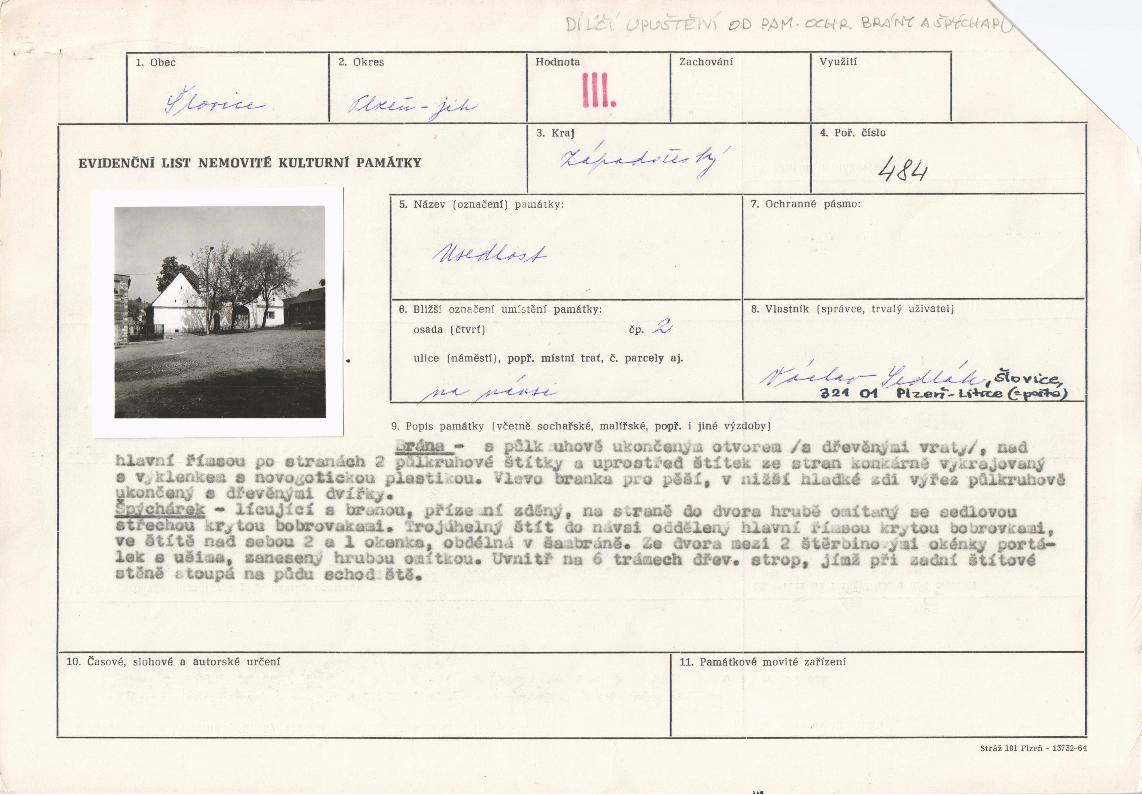 DÍLČÍ UPUŠTĚNÍ OD PAM. OCHR. BRÁNY A ŠPÝCHARU
1. Obec
Šlovice
2. Okres
Plzeň-jih
Hodnota
III.
Zachování
Využití
EVIDENČNÍ LIST NEMOVITÉ KULTURNÍ PAMÁTKY
3. Kraj
Západočeský
4. Poř. číslo
484
5. Název (označení) památky:
Usedlost
7. Ochranné pásmo:
6. Bližší označení umístění památky:
osada (čtvrť) čp. 2
ulice (náměstí), popř. místní trať, č. parcely aj.
na návsi
8. Vlastník (správce, trvalý uživatel)
Václav Sedlák, Šlovice,
321 01 Plzeň-Litice (=pošta)
9. Popis památky (včetně sochařské, malířské, popř. i jiné výzdoby)
Brána - s půlk uhově ukončeným otvorem /s dřevěnými vraty/, nad
hlavní římsou po stranách 2 půlkruhové štítky a uprostřed štítek ze stran konkárně vykrajovaný
s výklenkem s novogotickou plastikou. Vlevo branka pro pěší, v nižší hladké zdi výřez půlkruhově
ukončený s dřevěnými dvířky.
Špýchárek - lícující s branou, příze ní zděný, na straně do dvora hrubě omítaný se sedlovou
střechou krytou bobrovakami. Trojúhelný štít do návsi oddělený hlavní římsou krytou bobrovkami,
ve štítě nad sebou 2 a 1 okenka, obdélná v šambráně. Ze dvora mezi 2 štěrbino ými okénky portá-
lek s ušima, zanesený hrubou omítkou. Uvnitř na 6 trámech dřev. strop, jímž při zadní štítové
stěně stoupá na půdu schod ště.
10. Časové, slohové a autorské určení
11. Památkové movité zařízení
Stráž 101 Plzeň - 13732-64